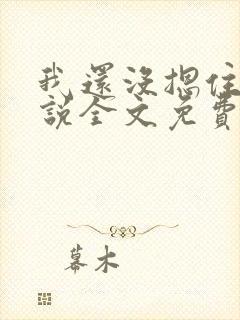 我還沒摁住
說全文免費
幕木